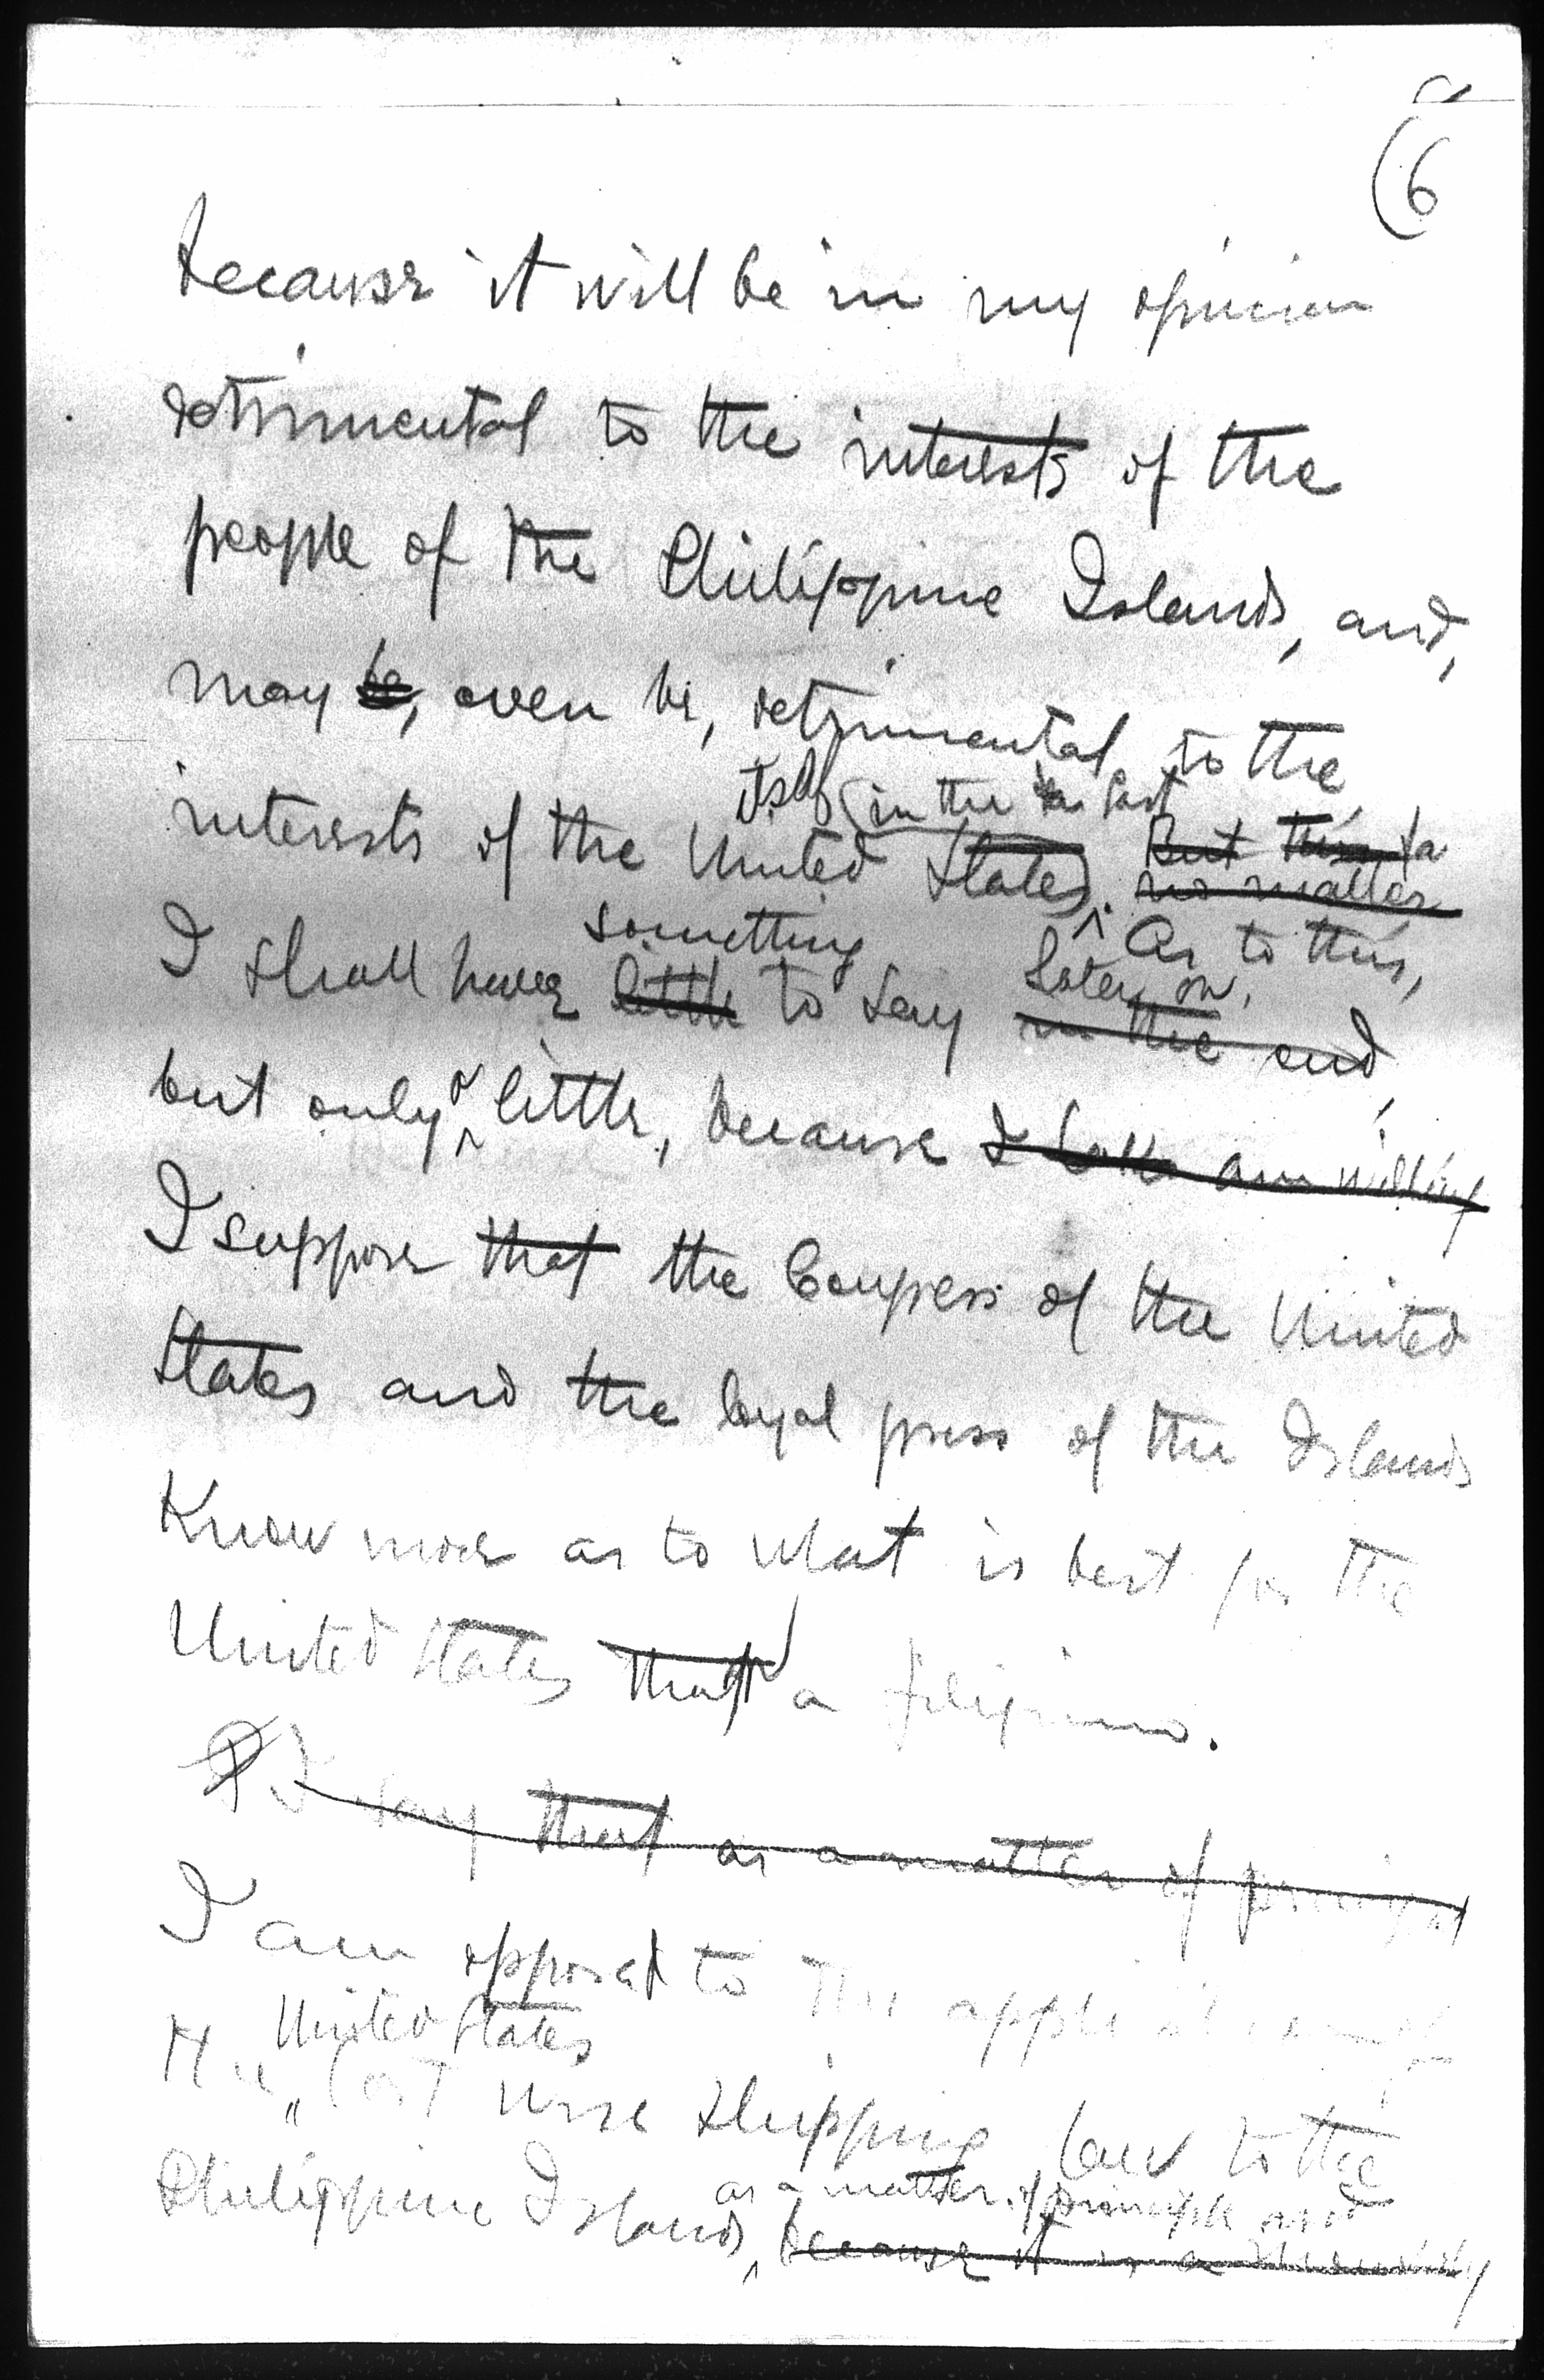 (6
because it will be in my opinion
detrimental to the interests of the
people of the Philippine Islands, and,
may be, even be, detrimental to the
itself (in the Far East
interests of the United States). But this
no matter
something As to this,
I shall have little to say in the end,
later on,
but only a little, because I am willing
I suppose that the Congress of the United
States and the loyal press of the Islands
Know more as to what is best for the
United States than a filipino.
I say that as a matter of principle
I am opposed to the application of
United States
the coast wise shipping laws to the
as a matter of principle and
Philippine Islands, because it is a